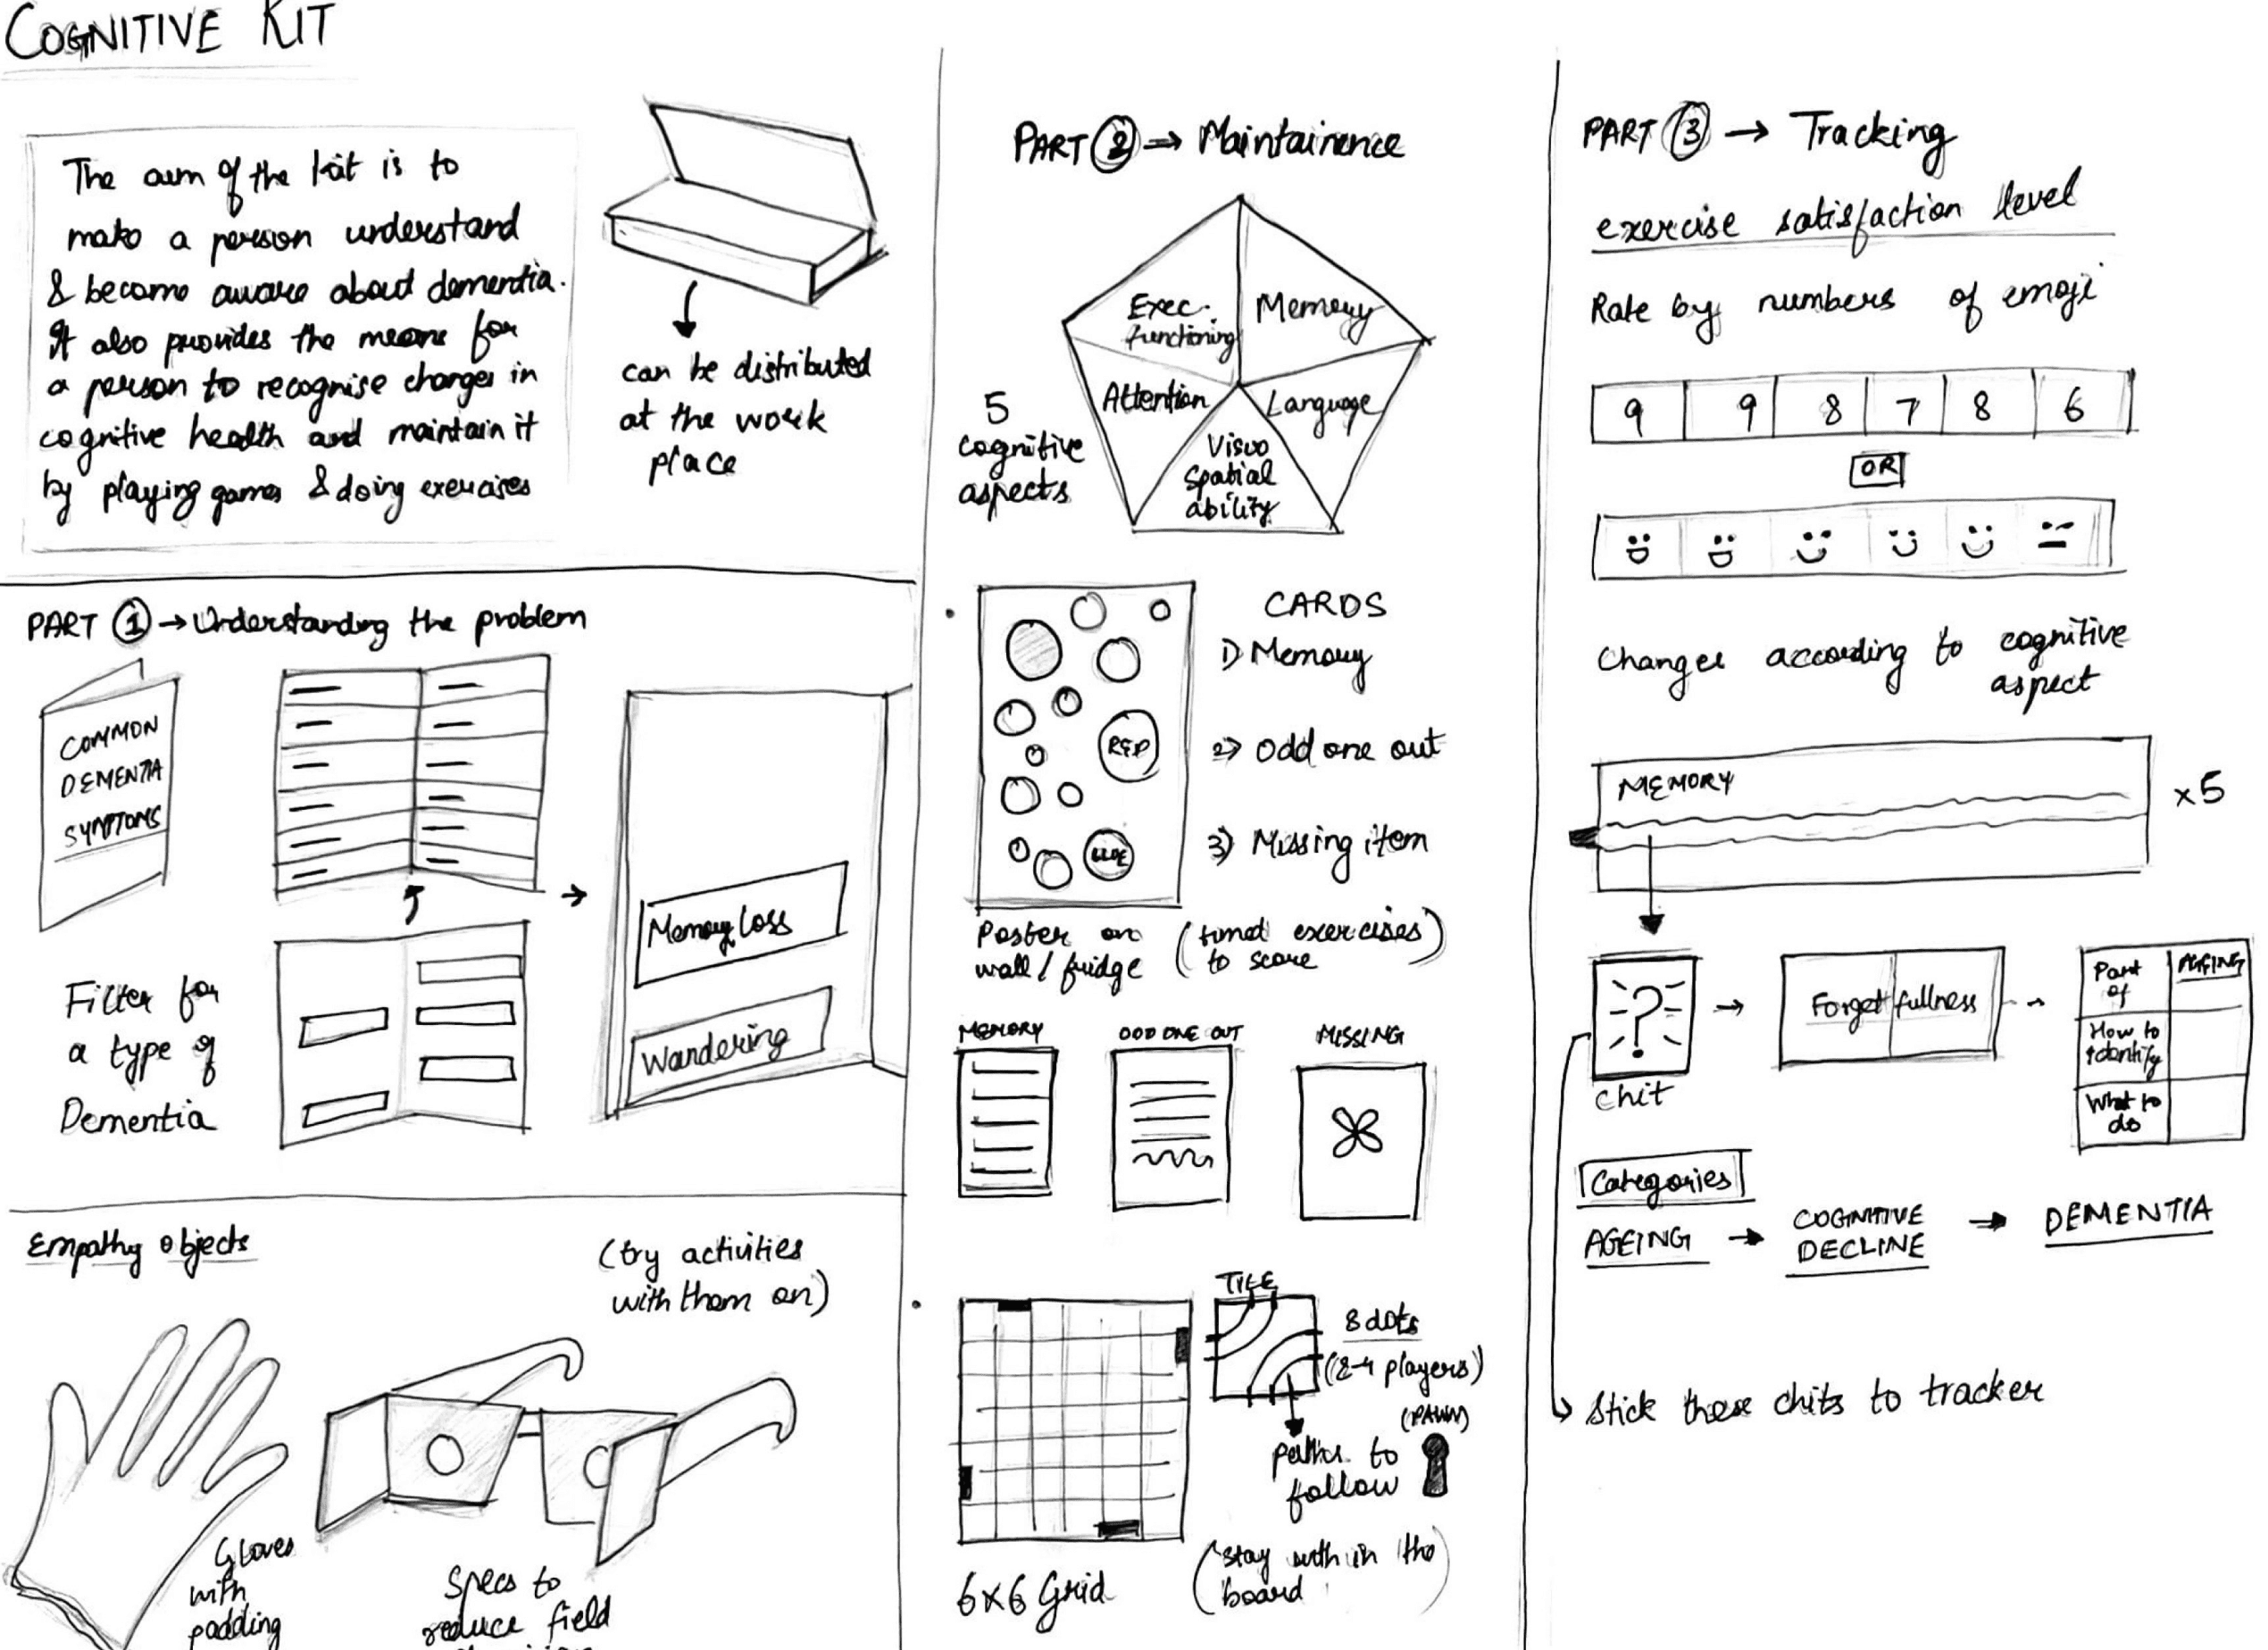 COGNITIVE KIT
The aim of the kit is to
make a person understand
& become aware about dementia.
It also provides the means for
a person to recognise changes in
cognitive health and maintain it
by playing games & doing exercises
can be distributed
at the work
place
PART 1 → Understanding the problem
COMMON
DEMENTIA
SYMPTOMS
Filter for
a type of
Dementia
Memory loss
Wandering
Empathy objects
(try activities
with them on)
Gloves
with
padding
Specs to
reduce field
PART 2 → Maintainence
5
cognitive
aspects
Exec.
functioning
Memory
Attention
Language
Visuo
Spatial
ability
RED
BLUE
CARDS
1) Memory
2) Odd one out
3) Missing item
Poster on
wall / fridge
(timed exercises)
to score
MEMORY
ODD ONE OUT
MISSING
TILE
8 dots
(2-4 players)
(PAWN)
paths to
follow
6x6 Grid
(stay with in the
board)
PART 3 → Tracking
exercise satisfaction level
Rate by numbers of emoji
9 9 8 7 8 6
OR
Changes according to cognitive
aspect
MEMORY
x5
?
chit
Forget fullness
Part
of
AGEING
How to
identify
What to
do
Categories
AGEING → COGNITIVE
DECLINE → DEMENTIA
Stick these chits to tracker